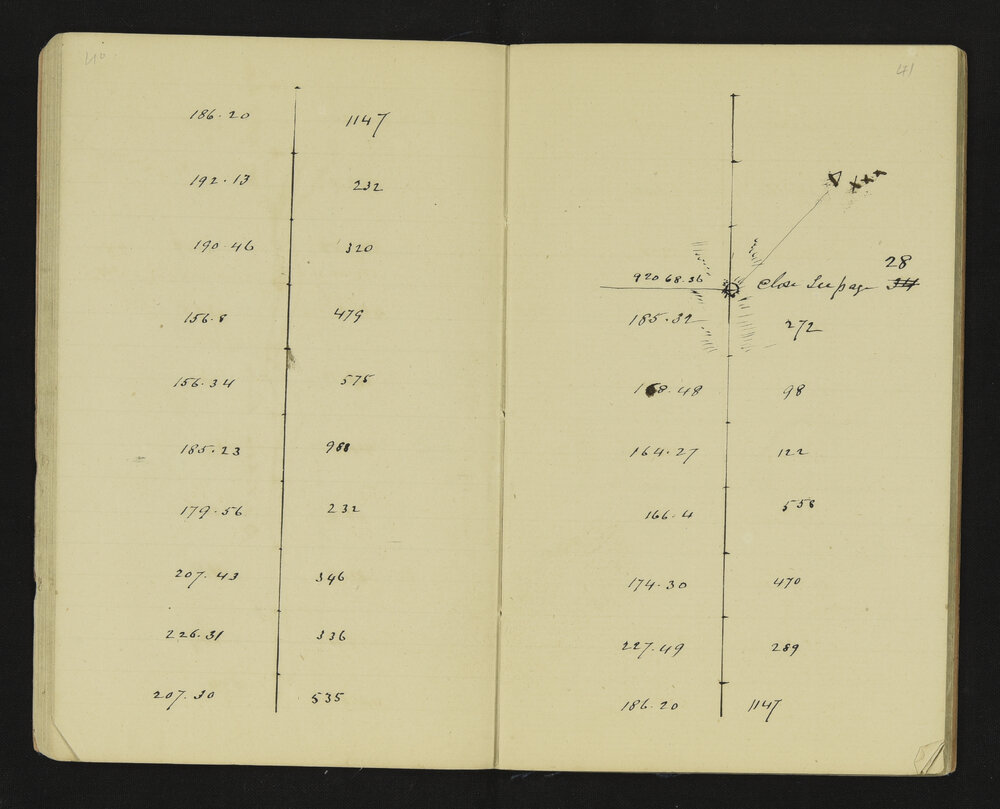 40
186.20 1147
192.13 232
190.46 320
156.8 479
156.34 575
185.23 988
179.56 232
207.43 346
226.31 336
207.30 535
41
28
920 68.36 Close See page 34
185.32 272
168.48 98
164.27 122
166.4 558
174.30 470
227.49 289
186.20 1147